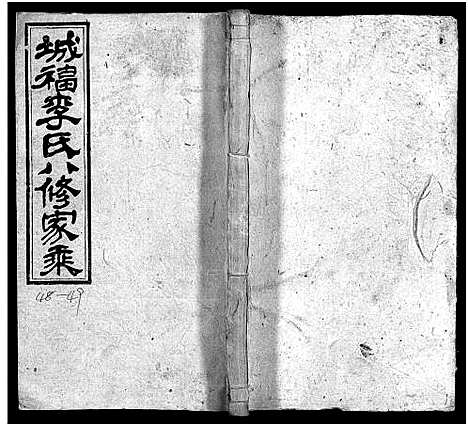 城福李氏八修家乘
48-49